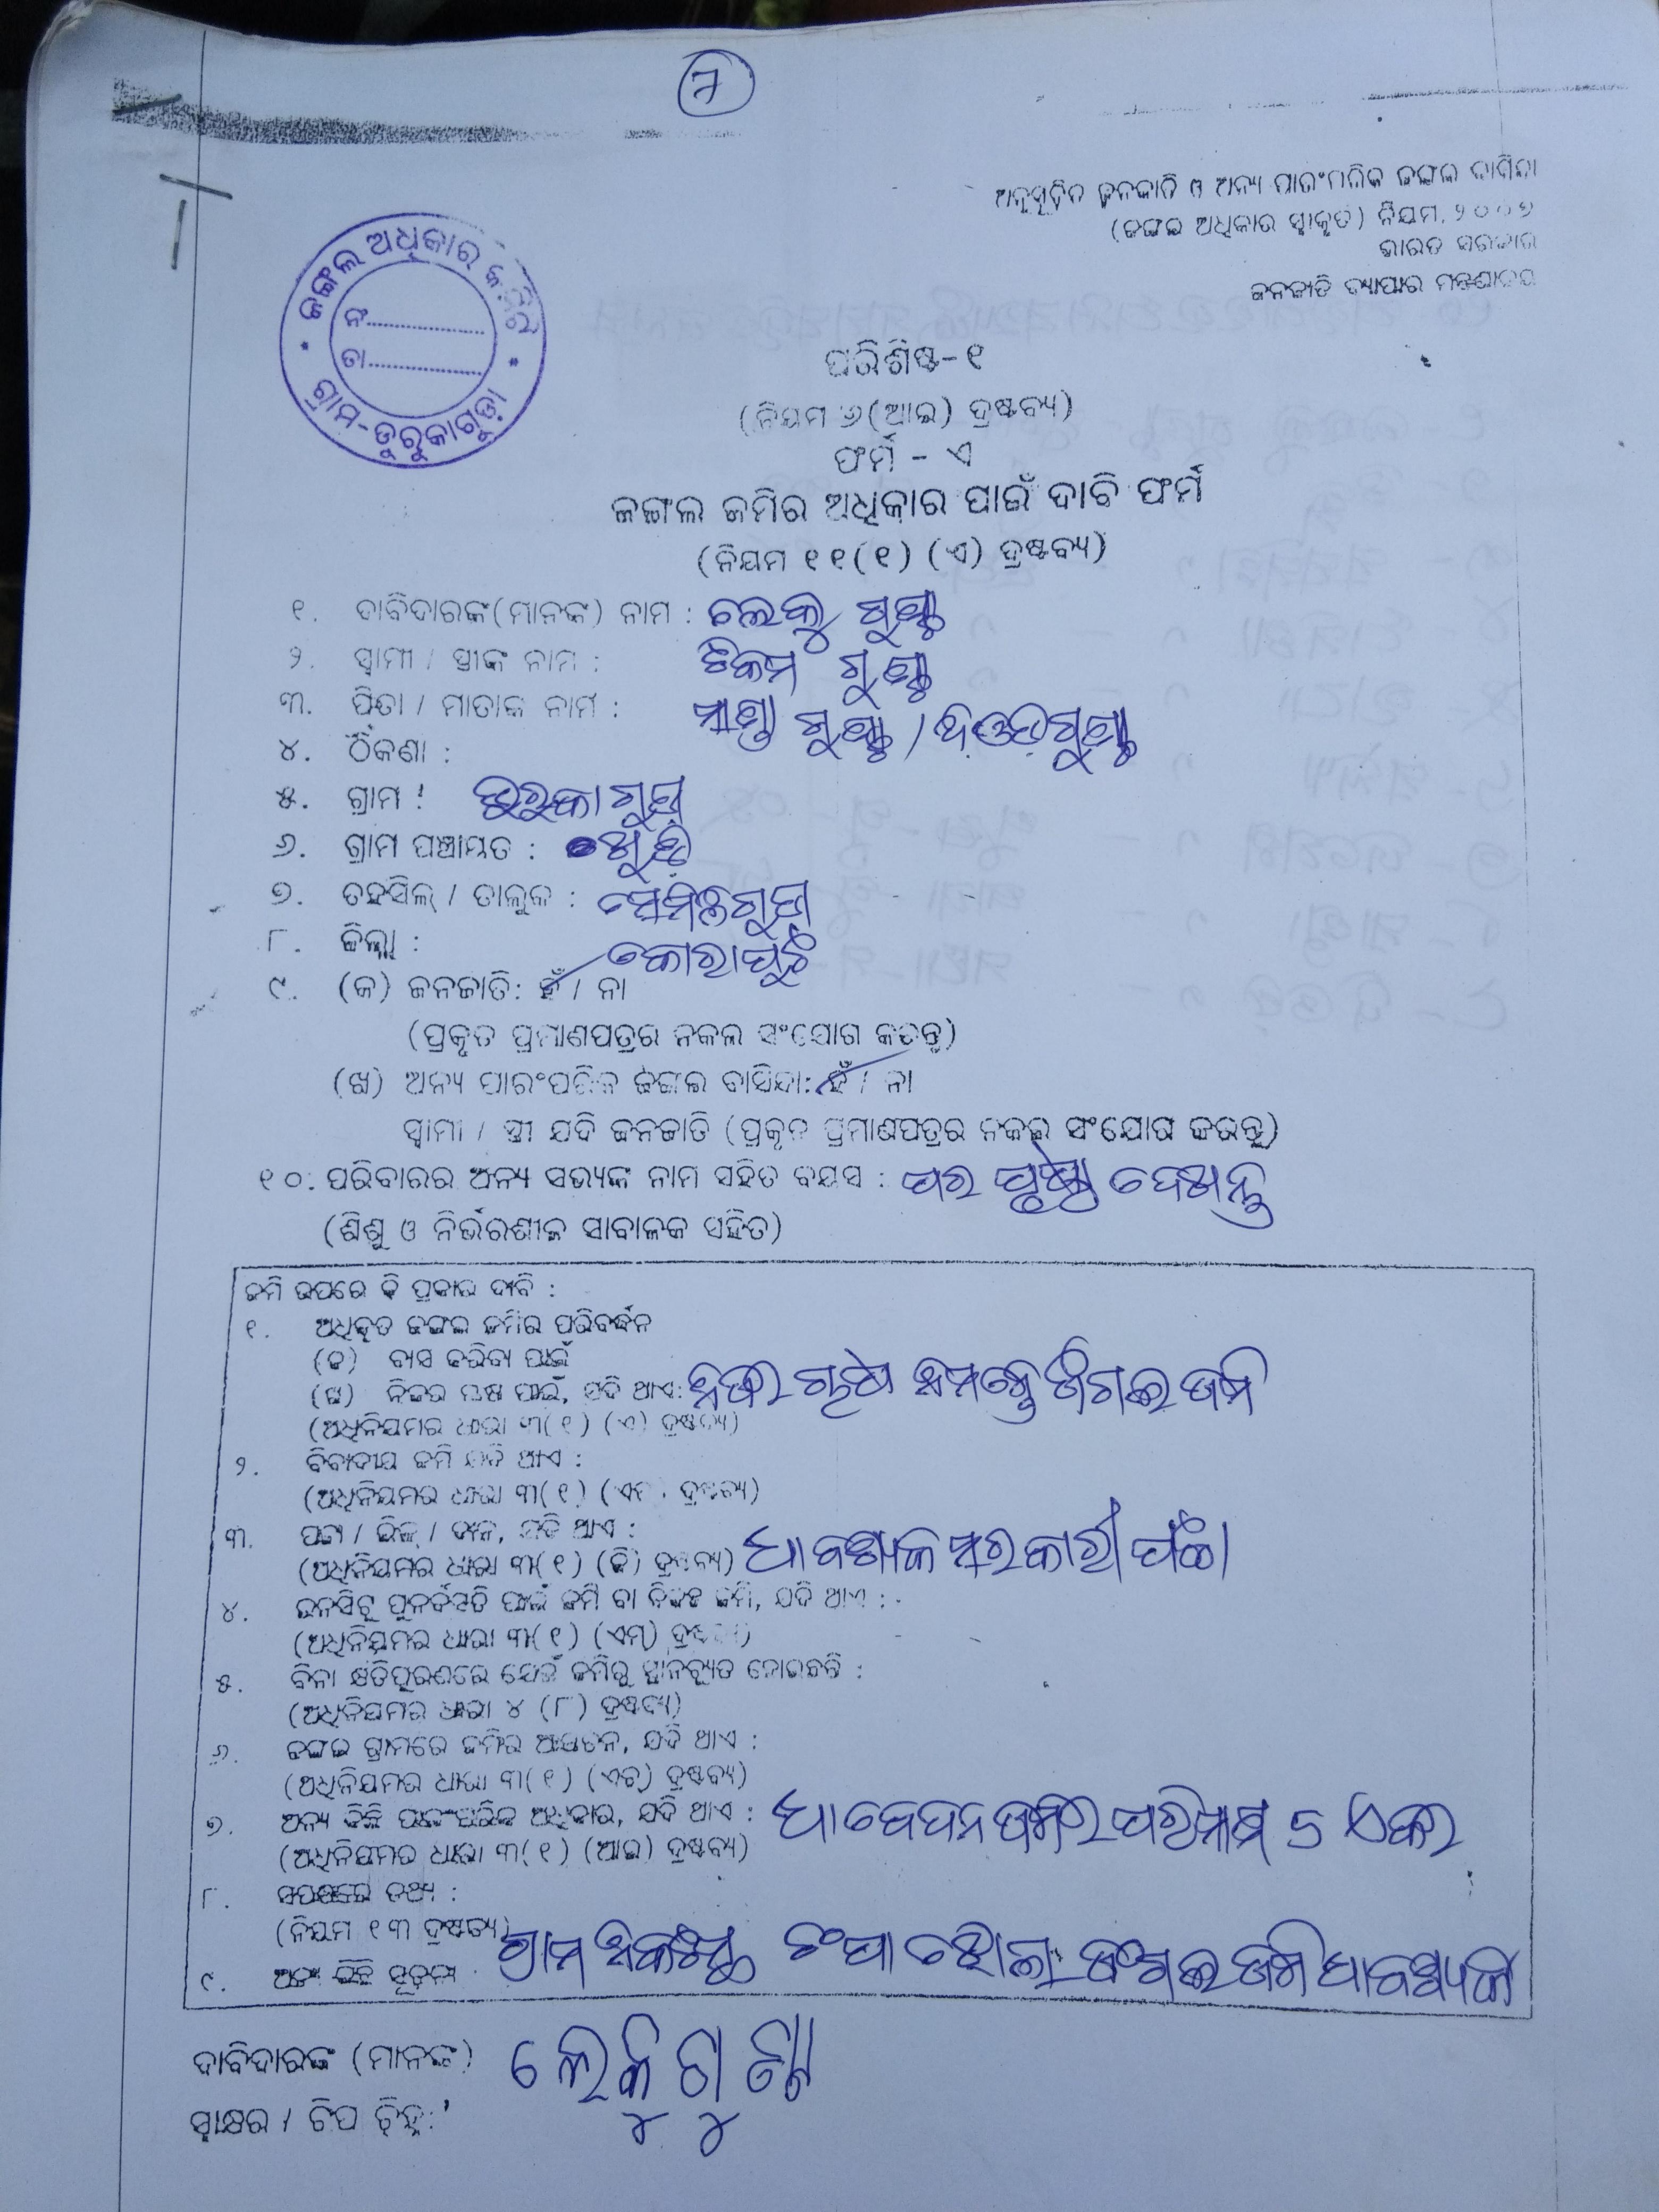 ୨
ଅନୁସୂଚିତ ଜନଜାତି ଓ ଅନ୍ୟ ପାରଂପରିକ ଜଙ୍ଗଲ ବାସିନ୍ଦା
(ଜଙ୍ଗଲ ଅଧିକାର ସ୍ୱୀକୃତ) ନିୟମ, ୨୦୦୭
ଭାରତ ସରକାର
ଜନଜାତି ବ୍ୟାପାର ମନ୍ତ୍ରଣାଳୟ
ଜଙ୍ଗଲ ଅଧିକାର କମିଟି
ନଂ
ତା
ଗ୍ରାମ-ଡୁରୁକାଗୁଡ଼ା
ପରିଶିଷ୍ଟ-୧
(ନିୟମ ୬(ଆଇ) ଦ୍ରଷ୍ଟବ୍ୟ)
ଫର୍ମ - ଏ
ଜଙ୍ଗଲ ଜମିର ଅଧିକାର ପାଇଁ ଦାବି ଫର୍ମ
(ନିୟମ ୧୧(୧) (ଏ) ଦ୍ରଷ୍ଟବ୍ୟ)
୧. ଦାବିଦାରଙ୍କ(ମାନଙ୍କ) ନାମ :
୨. ସ୍ୱାମୀ / ସ୍ତ୍ରୀଙ୍କ ନାମ :
୩. ପିତା / ମାତାଙ୍କ ନାମ :
୪. ଠିକଣା :
୫. ଗ୍ରାମ : ଡୁରୁକାଗୁଡ଼ା
୬. ଗ୍ରାମ ପଞ୍ଚାୟତ :
୭. ତହସିଲ୍ / ତାଲୁକ : ସେମିଳିଗୁଡ଼ା
୮. ଜିଲ୍ଲା : କୋରାପୁଟ
୯. (କ) ଜନଜାତି: ହଁ / ନା
(ପ୍ରକୃତ ପ୍ରମାଣପତ୍ରର ନକଲ ସଂଯୋଗ କରନ୍ତୁ)
(ଖ) ଅନ୍ୟ ପାରଂପରିକ ଜଙ୍ଗଲ ବାସିନ୍ଦା: ହଁ / ନା
ସ୍ୱାମୀ / ସ୍ତ୍ରୀ ଯଦି ଜନଜାତି (ପ୍ରକୃତ ପ୍ରମାଣପତ୍ରର ନକଲ ସଂଯୋଗ କରନ୍ତୁ)
୧୦. ପରିବାରର ଅନ୍ୟ ସଭ୍ୟଙ୍କ ନାମ ସହିତ ବୟସ : ପର ପୃଷ୍ଠା ଦେଖନ୍ତୁ
(ଶିଶୁ ଓ ନିର୍ଭରଶୀଳ ସାବାଳକ ସହିତ)
ଜମି ଉପରେ କି ପ୍ରକାର ଦାବି :
୧. ଅଧିକୃତ ଜଙ୍ଗଲ ଜମିର ପରିବର୍ଦ୍ଧନ
(କ) ବାସ କରିବା ପାଇଁ
(ଖ) ନିଜର ଚାଷ ପାଇଁ, ଯଦି ଥାଏ:
(ଅଧିନିୟମର ଧାରା ୩(୧) (ଏ) ଦ୍ରଷ୍ଟବ୍ୟ)
୨. ବିବାଦୀୟ ଜମି ଯଦି ଥାଏ :
(ଅଧିନିୟମର ଧାରା ୩(୧) ଦ୍ରଷ୍ଟବ୍ୟ)
୩. ପଟ୍ଟା / ଲିଜ୍ / ଦାନ, ଯଦି ଥାଏ :
(ଅଧିନିୟମର ଧାରା ୩(୧) (ଜି) ଦ୍ରଷ୍ଟବ୍ୟ) ଆବଶ୍ୟକ ସରକାରୀ ପଟ୍ଟା
୪. ଇନସିଟୁ ପୁନର୍ବସତି ପାଇଁ ଜମି ବା ବିକଳ୍ପ ଜମି, ଯଦି ଥାଏ :
(ଅଧିନିୟମର ଧାରା ୩(୧) (ଏମ୍) ଦ୍ରଷ୍ଟବ୍ୟ)
୫. ବିନା କ୍ଷତିପୂରଣରେ ଯେଉଁ ଜମିରୁ ସ୍ଥାନଚ୍ୟୁତ ହୋଇଛନ୍ତି :
(ଅଧିନିୟମର ଧାରା ୪ (୮) ଦ୍ରଷ୍ଟବ୍ୟ)
୬. ଜଙ୍ଗଲ ଗ୍ରାମରେ ଜମିର ଆବଣ୍ଟନ, ଯଦି ଥାଏ :
(ଅଧିନିୟମର ଧାରା ୩(୧) (ଏଚ୍) ଦ୍ରଷ୍ଟବ୍ୟ)
୭. ଅନ୍ୟ କିଛି ପାରଂପରିକ ଅଧିକାର, ଯଦି ଥାଏ : ଆବେଦନ ଜମିର ପରିମାଣ 5 ଏକର
(ଅଧିନିୟମର ଧାରା ୩(୧) (ଆଇ) ଦ୍ରଷ୍ଟବ୍ୟ)
୮. ସପକ୍ଷରେ ତଥ୍ୟ :
(ନିୟମ ୧୩ ଦ୍ରଷ୍ଟବ୍ୟ)
୯. ଅନ୍ୟ କିଛି ସୂଚନା : ଗ୍ରାମ ନିକଟସ୍ଥ ଜଂଗଲ ଜମି ଆବଶ୍ୟକ
ଦାବିଦାରଙ୍କ (ମାନଙ୍କ)
ସ୍ୱାକ୍ଷର / ଟିପ ଚିହ୍ନ: